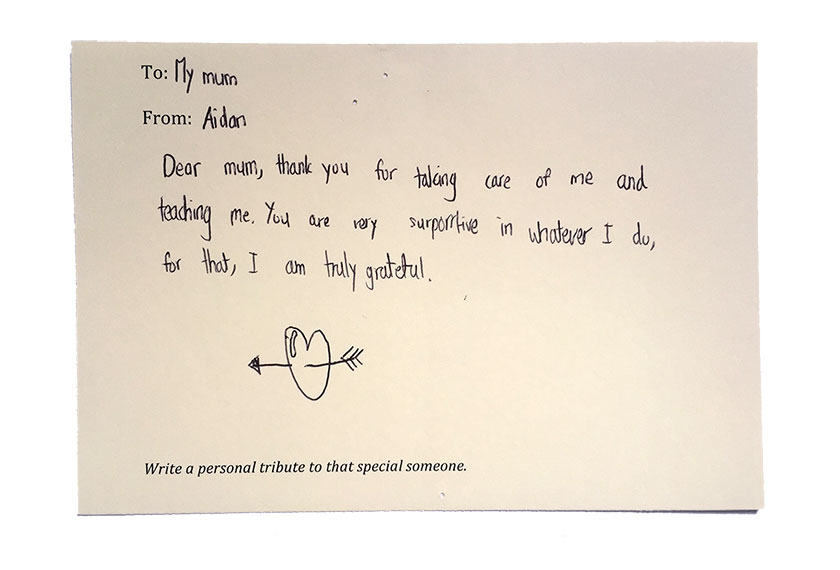 To: My mum
From: Aidan
Dear mum, thank you for taking care of me and
teaching me. You are very surportive in whatever I do,
for that, I am truly grateful.
Write a personal tribute to that special someone.